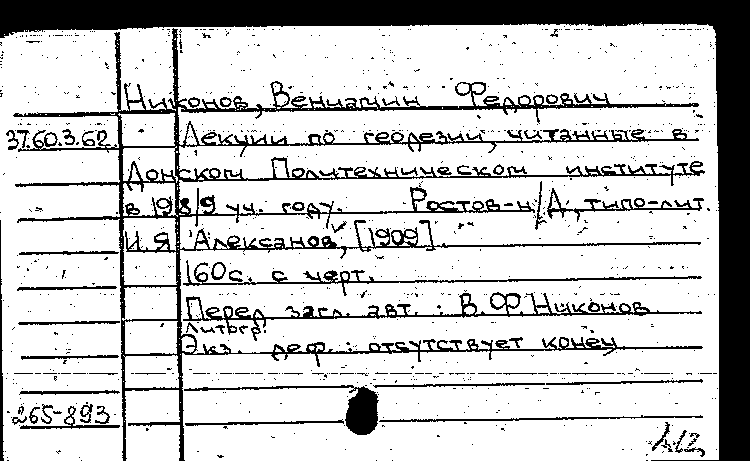 Никонов, Вениамин Федорович
37.60.3.62 Лекции по геодезии, читанные в
Донском Политехническом институте
в 1908/9 уч. году. Ростов-н/Д., типо-лит.
И.Я Алексанов, [1909].
160 с. с черт.
Перед загл. авт.: В.Ф. Никонов
Литогр.
Экз. деф.: отсутствует конец
265-893